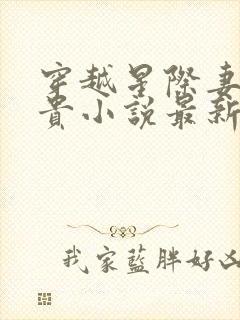 穿越星際妻
貴小說最新
我家藍胖好凶